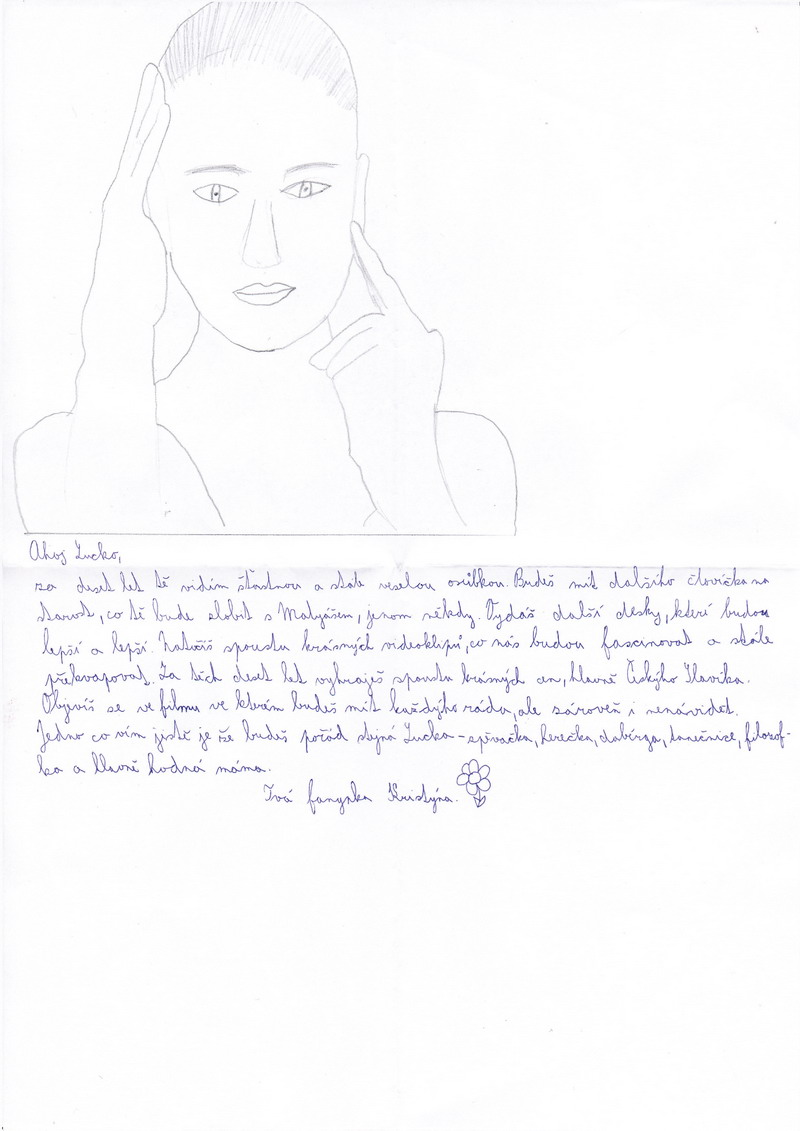 Ahoj Lucko,
za deset let tě vidím šťastnou a stále veselou osůbkou. Budeš mít dalšího človíčka na
starost, co tě bude zlobit s Matyášem, jenom někdy. Vydáš další desky, kterí budou
lepší a lepší. Natočíš spoustu krásných videoklipů, co nás budou fascinovat a stále
překvapovat. Za těch deset let vyhraješ spoustu krásných cen, hlavně Českýho Slavíka.
Objevíš se ve filmu ve kterém budeš mít každýho ráda, ale zároveň i nenávidět.
Jedno co vím jistě je že budeš pořád stejná Lucka - zpěvačka, herečka, dabérga, tanečnice, filozof-
ka a hlavně hodná máma.
Tvá fanynka Kristýna.